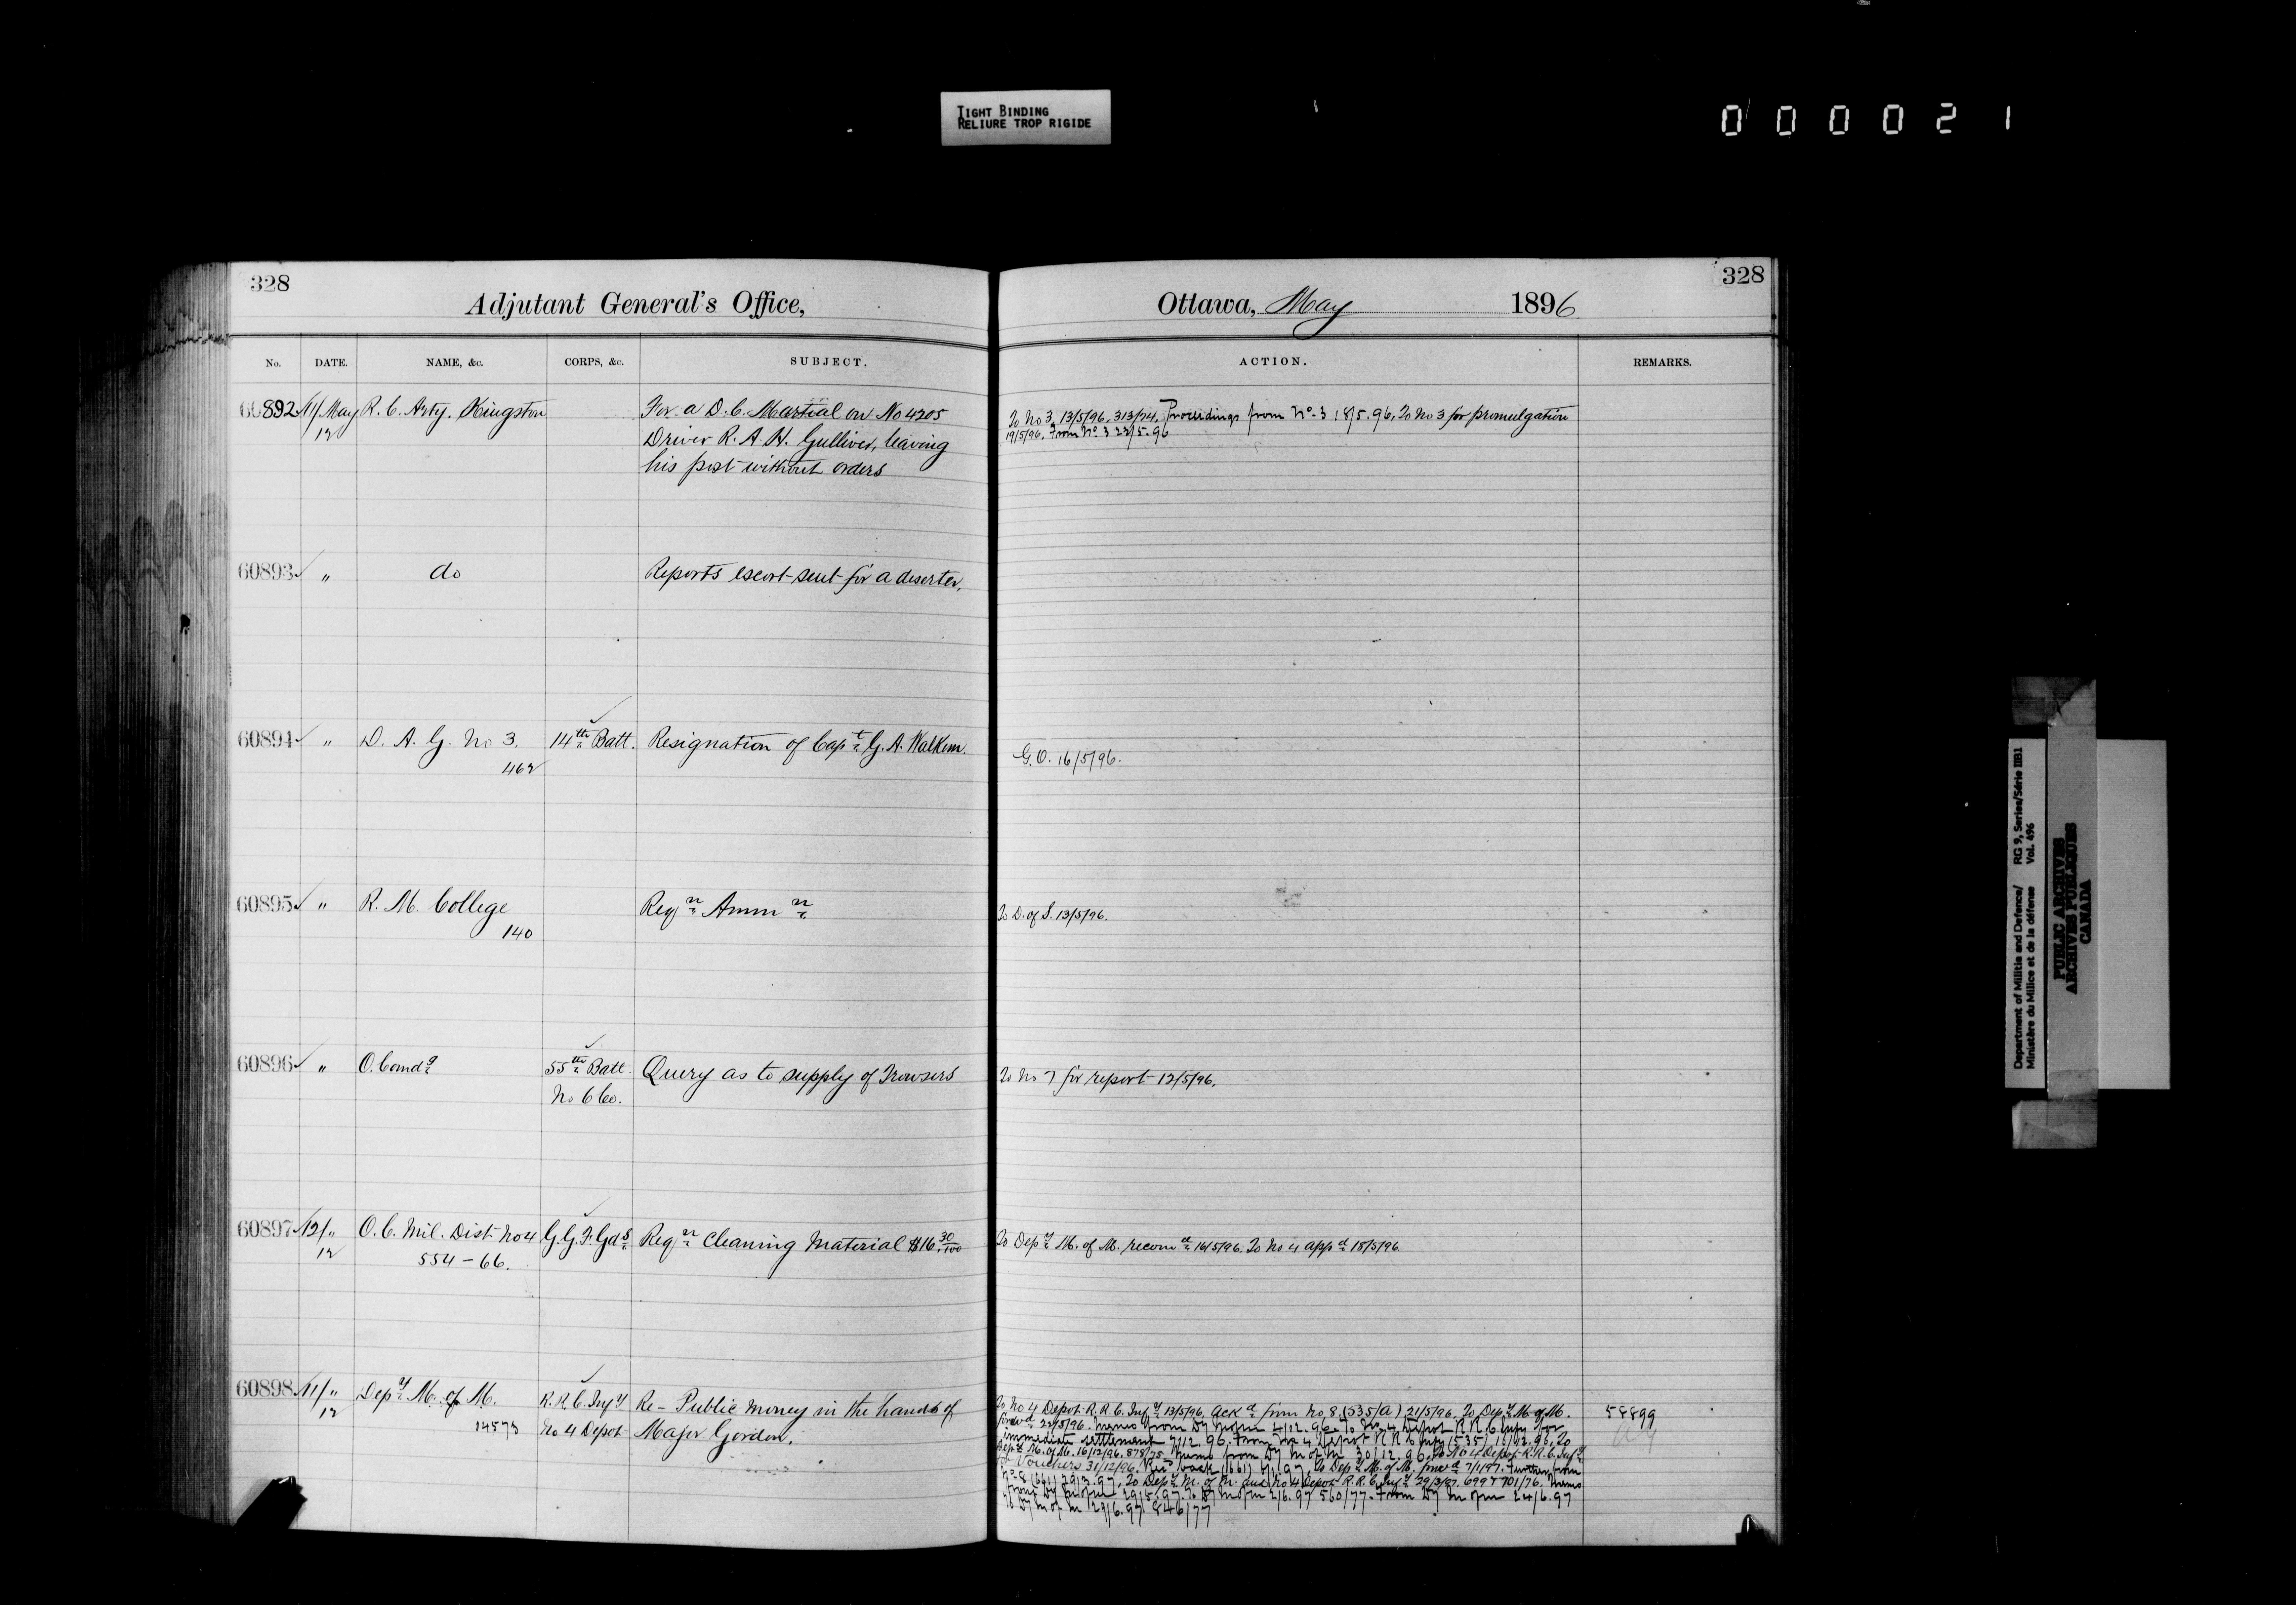 TIGHT BINDING
RELIURE TROP RIGIDE
000021
328
Adjutant General's Office,
Ottawa, May 1896
328
No. DATE. NAME, &c. CORPS, &c. SUBJECT. ACTION. REMARKS.
60892 11/ May R. C. Arty. Kingston For a D. C. Martial on No 4205
12 Driver R. A. H. Gulliver, leaving
his post without orders
To No 3, 13/5/96, 313/74, Proceedings from No. 3 18/5.96, To No 3 for promulgation
19/5/96, From No 3 22/5.96
60893 " do Reports escort sent for a deserter.
60894 " D. A. G. No 3. 14th Batt. Resignation of Capt. G. A. Walkem.
462
G.O. 16/5/96.
60895 " R. M. College Reqn Ammn
140
To D. of S. 13/5/96.
60896 " O. Comdg 55th Batt. Query as to supply of Trowsers
No 6 Co.
To No 7 for report 12/5/96.
60897 12/ " O. C. Mil. Dist No 4 G. G. F. Gds Reqn Cleaning Material $16 30/100
12 554-66.
To Depy M. of M. recomd 16/5/96. To No 4 appd 18/5/96.
60898 11/ " Depy M. of M. R. R. C. Infy Re- Public money in the hands of
12 14573 No 4 Depot Major Gordon.
To No 4 Depot R. R. C. Infy 13/5/96, Ackd from No 8 (535/a) 21/5/96, To Depy M of M. 58899
forwd 22/5/96. Memo from Dy M of M 4/12.96. To No 4 Depot R R C Infy for
immediate settlement 7/12.96. From No 4 Depot R R C Infy (535) 11/12.96, To
Depy M. of M. 16/12/96. 878/75 Memo from Dy M of M 30/12.96, To No 4 Depot R. R. C. Infy
for Vouchers 31/12/96. Recd back (661) To Depy M. of M. forwd 7/1/97. Further from
No 8 (661) 29/3.97, To Depy M. of M. and No 4 Depot R. R. C. Infy 29/3/97. 699 & 701/76. Memo
from Dy M of M 29/5.97. To Dy M of M 2/6.97 560/77. From Dy M of M 24/6.97
To Dy M of M 29/6.97. 846/77
Department of Militia and Defence/ RG 9, Series/Série IIB1
Ministère du Milice et de la défense Vol. 496
PUBLIC ARCHIVES
ARCHIVES PUBLIQUES
CANADA